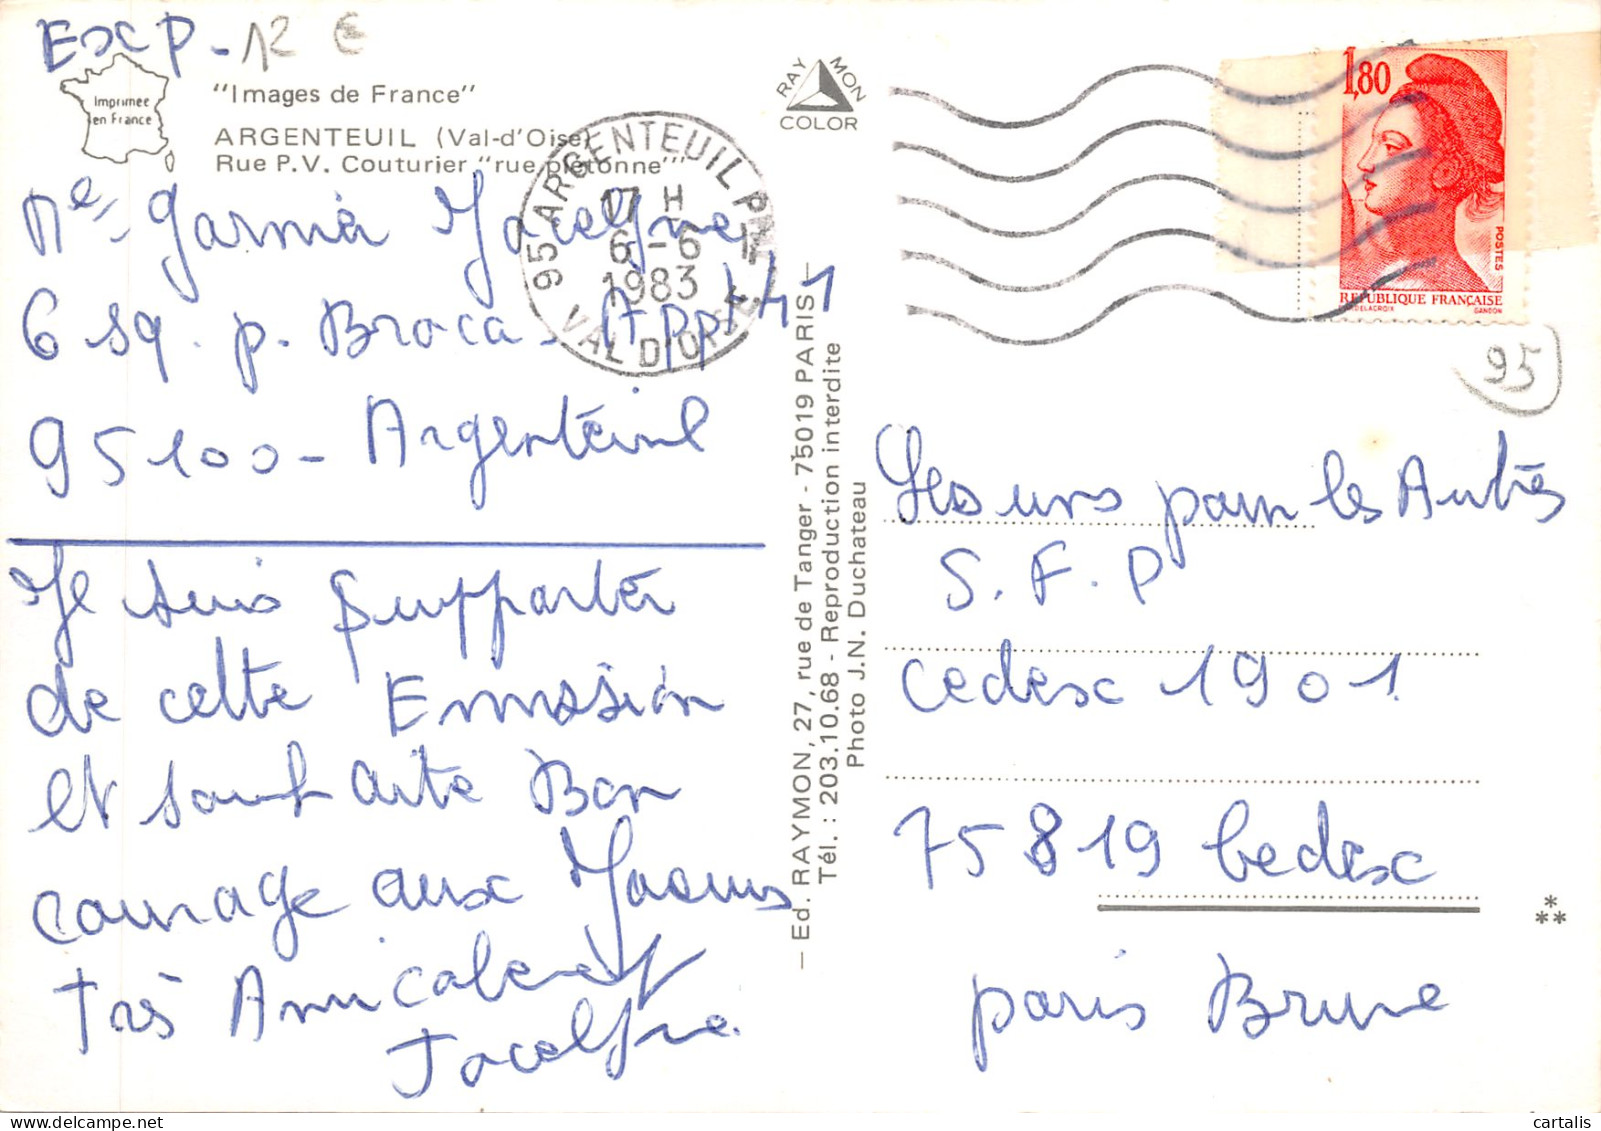 Exp - 12 €
Imprimée
en France
"Images de France"
ARGENTEUIL (Val-d'Oise)
Rue P.V. Couturier "rue piétonne"
RAY MON
COLOR
95 ARGENTEUIL PAL
17 H
6 - 6
1983
VAL D'OISE
1,80
POSTES
REPUBLIQUE FRANÇAISE
DELACROIX GANDON
95
Me Garnia Jocelyne
6 sq. p. Broca. App 141
95100 - Argenteuil
Je suis supporter
de cette Emission
et souhaite Bon
courage aux
très Amicalement
Jocelyne.
— Ed. RAYMON, 27, rue de Tanger - 75019 PARIS —
Tél. : 203.10.68 - Reproduction interdite
Photo J.N. Duchateau
Les uns pour les Autres
S.F.P
cedex 1901
75819 Cedex
paris Brune
cartalis | Delcampe.net